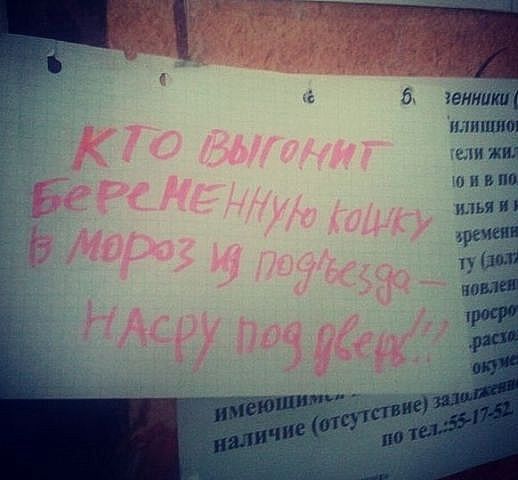 КТО ВЫГОНИТ
БЕРЕМЕННУЮ КОШКУ
В МОРОЗ ИЗ подъезда —
НАСРУ под дверь!!!
б.
венники (
илищно
тели жи
ю и в по
илья и
времен
ту (дол
новлен
просро
расхо
окуме
имеющим
наличие (отсутствие) задолженн
по тел.:55-17-52